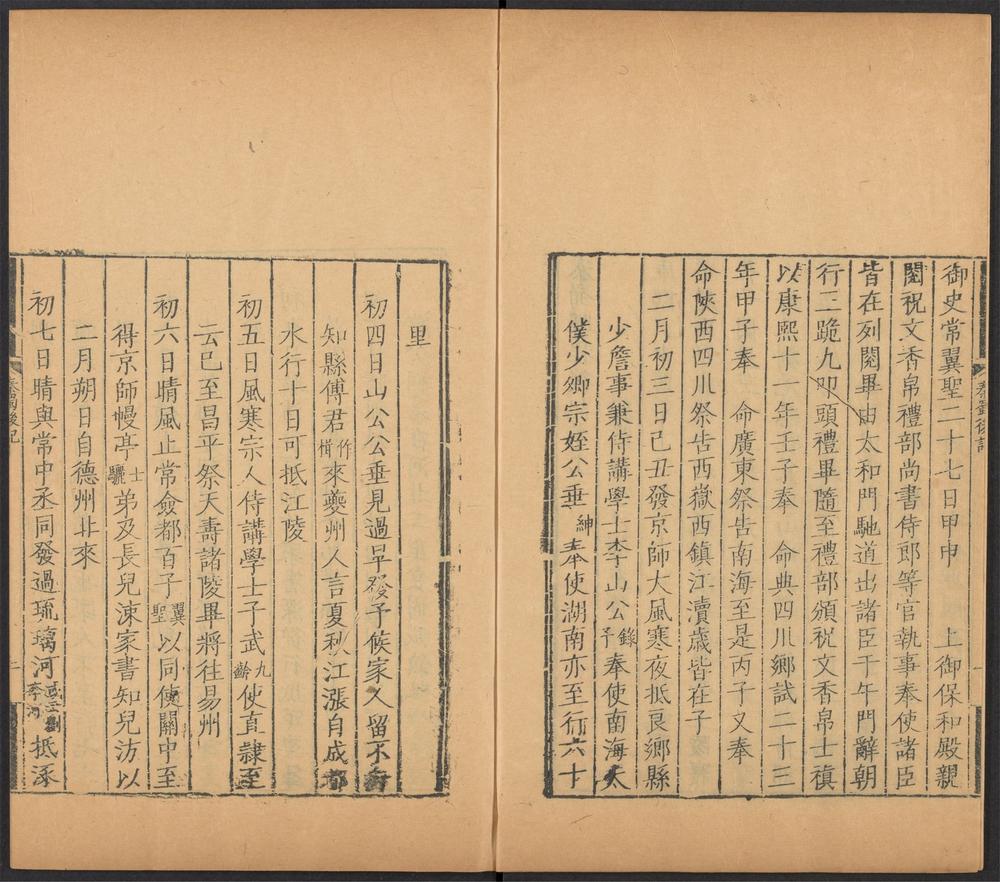 御史常翼聖二十七日甲申　上御保和殿親
閱祝文香帛禮部尚書侍郎等官執事奉使諸臣
皆在列閱畢由太和門馳道出諸臣于午門辭朝
行三跪九叩頭禮畢隨至禮部頒祝文香帛士禛
以康熙十一年壬子奉　命典四川鄉試二十三
年甲子奉　命廣東祭告南海至是丙子又奉
命陝西四川祭告西嶽西鎮江瀆歲皆在子
二月初三日己丑發京師大風寒夜抵良鄉縣
少詹事兼侍講學士李山公錄予奉使南海太
僕少卿宗姪公垂紳奉使湖南亦至行六十
秦蜀後記
里
初四日山公公垂見過早發予候家人留不行
知縣傅君作楫來夔州人言夏秋江漲自成都
水行十日可抵江陵
初五日風寒宗人侍講學士子武九齡使直隸至
云已至昌平祭天壽諸陵畢將往易州
初六日晴風止常僉都百子翼聖以同使關中至
得京師幔亭士驪弟及長兒涑家書知兒汸以
二月朔日自德州北來
初七日晴與常中丞同發過琉璃河抵涿
秦蜀後記